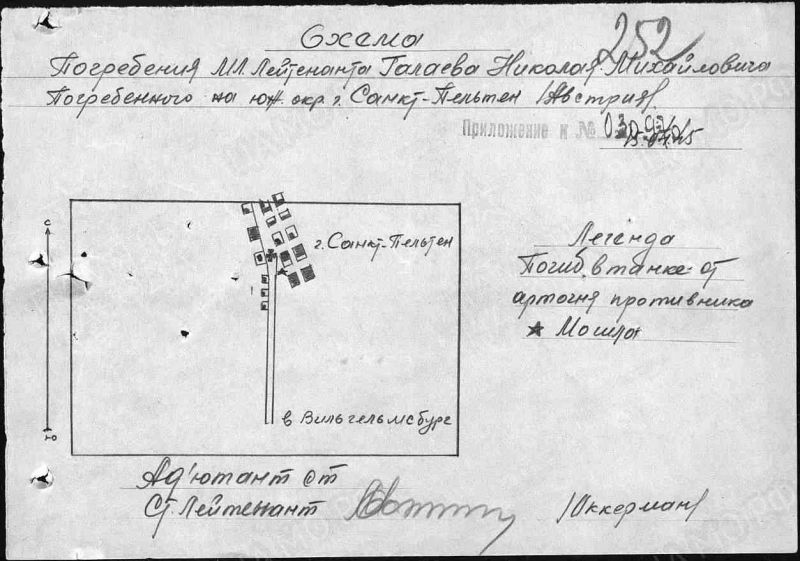 252
Схема
Погребения Мл Лейтенанта Галаева Николая Михайловича
Погребенного на юж окр г. Санкт-Пельтен (Австрия).
Приложение к №
15.04.45
с
г. Санкт-Пельтен
Легенда
Погиб в танке от
артогня противника
★ Могила
в Вильгельмсбург
ю
Ад'ютант
Ст. Лейтенант (Оккерман)